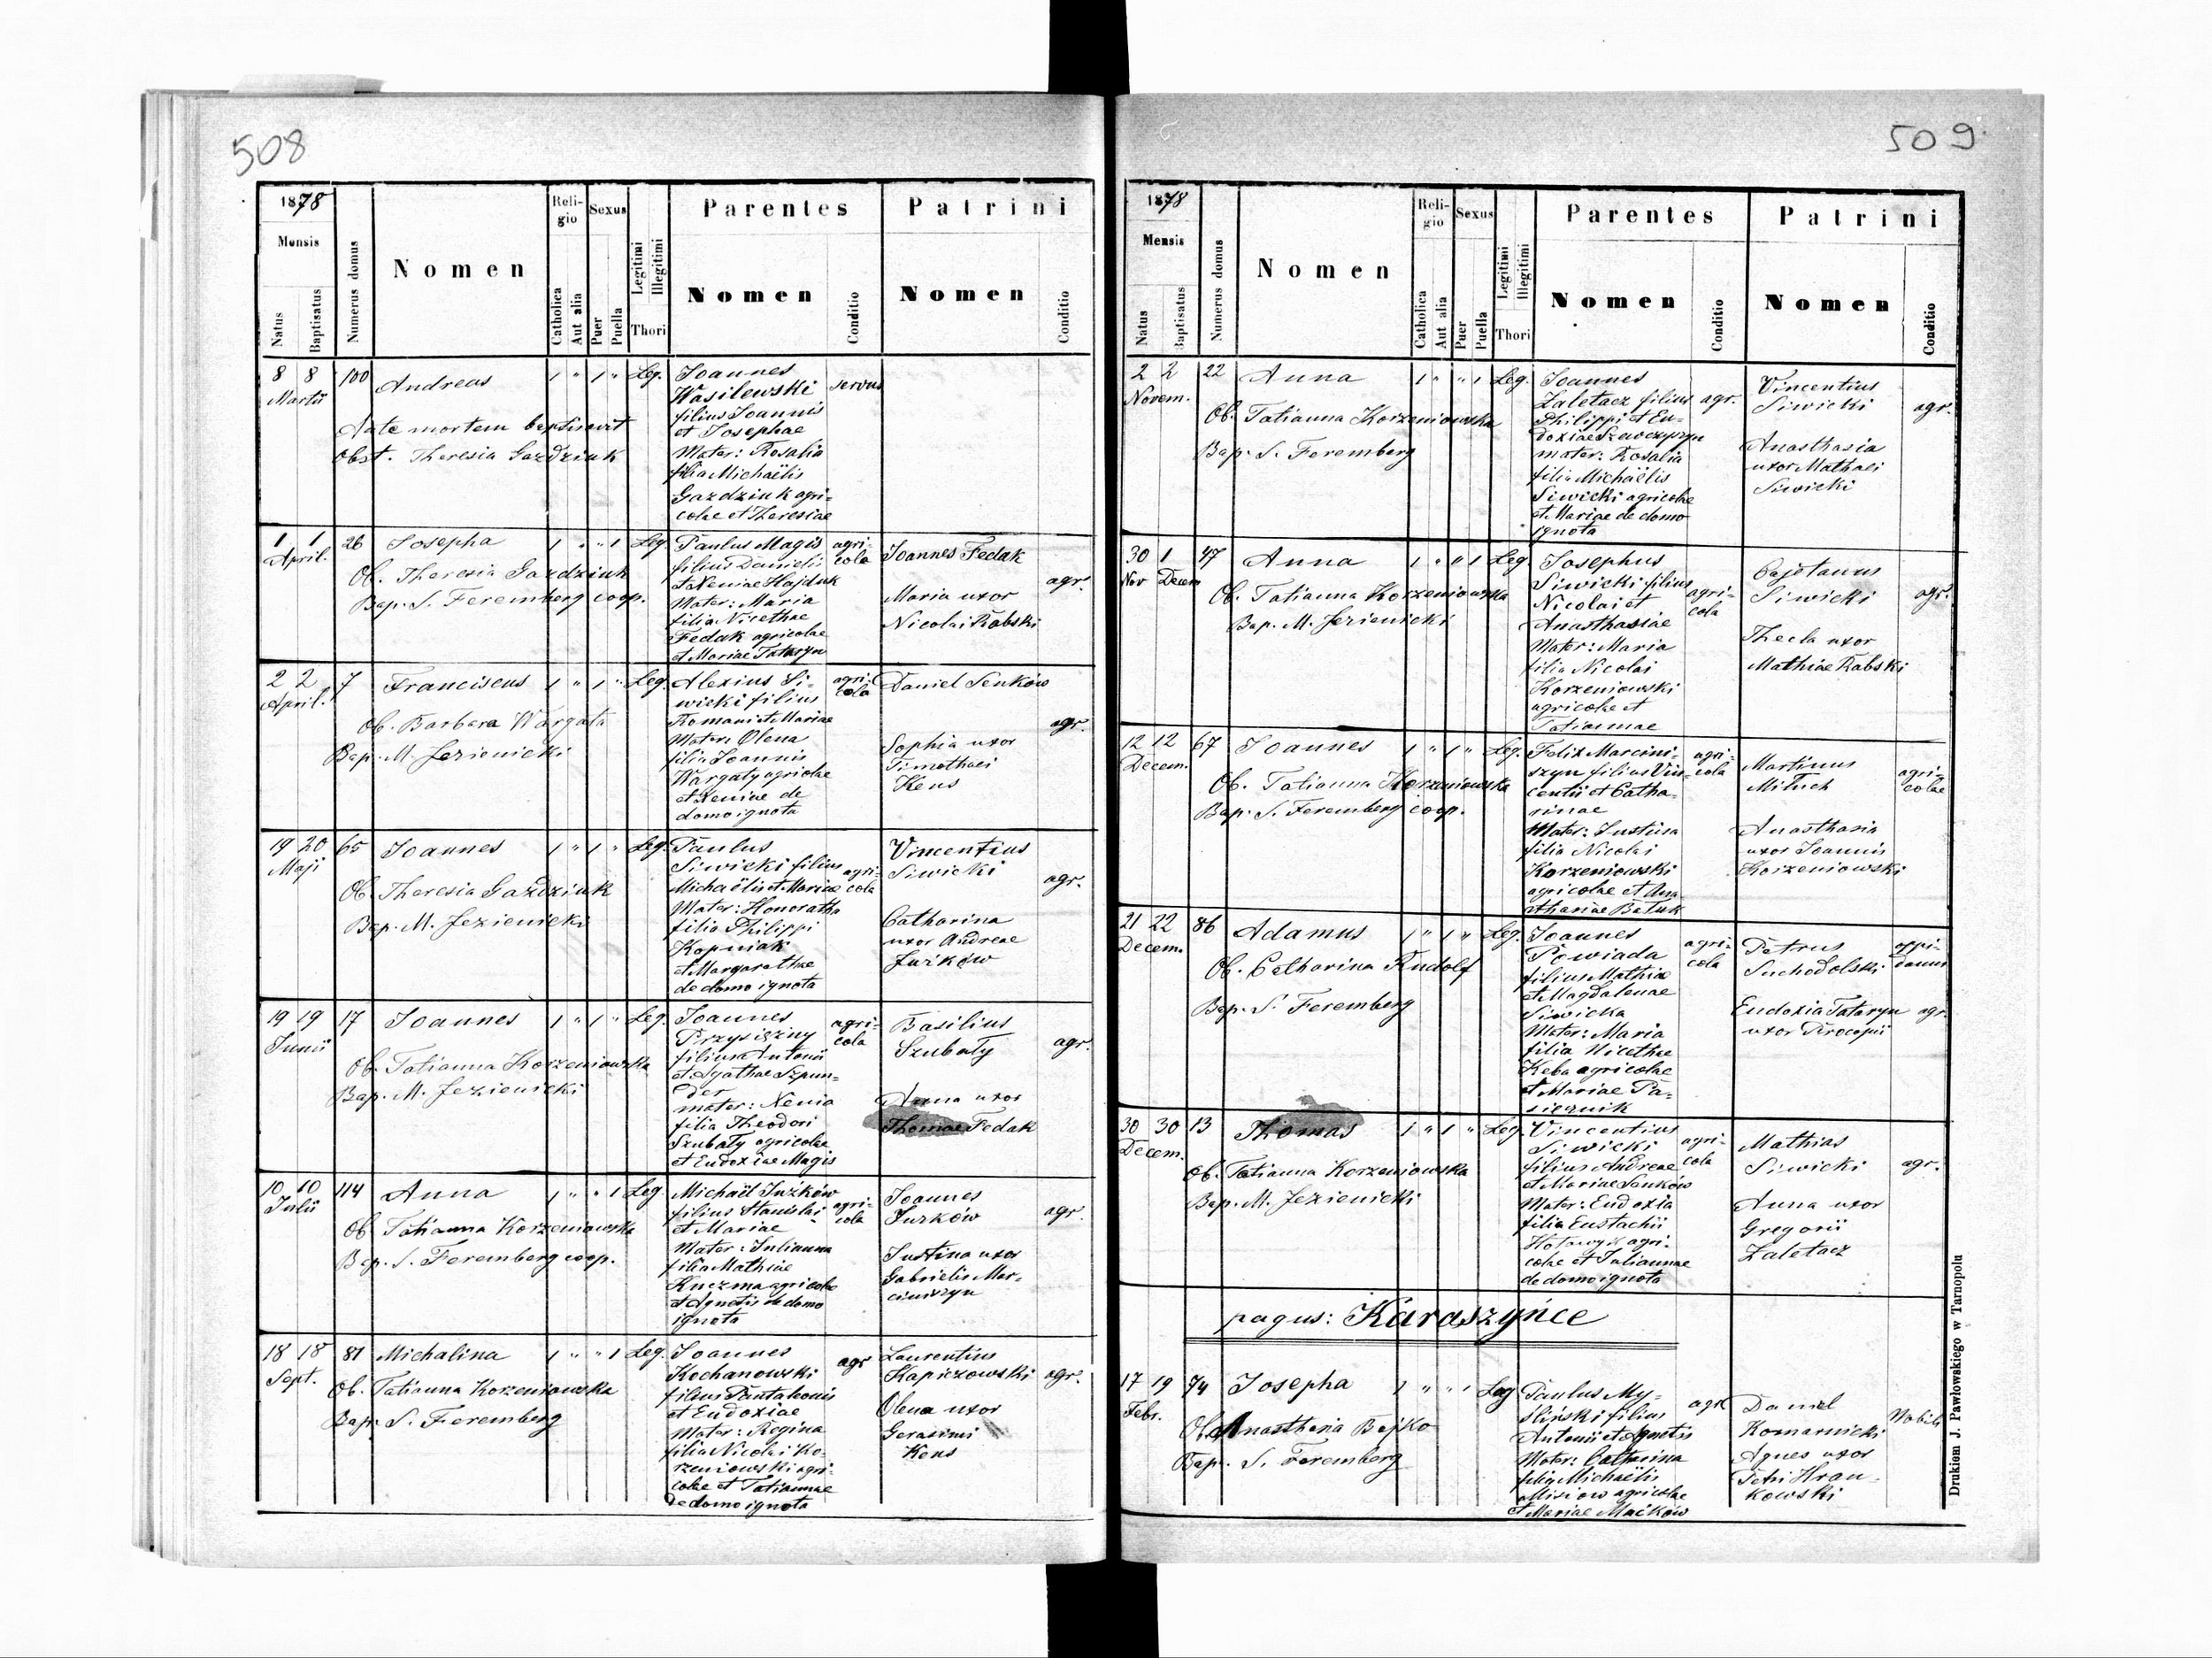 508
1878
Mensis
Natus
Baptisatus
Numerus domus
Nomen
Reli-
gio
Catholica
Aut alia
Sexus
Puer
Puella
Legitimi
Illegitimi
Thori
Parentes
Nomen
Conditio
Patrini
Nomen
Conditio
8 8
Martii
100
Andreas
1 " 1 " Leg.
Ante mortem baptisavit
Obst. Theresia Gazdziuk
Joannes
Wasilewski
filius Joannis
et Josephae
Mater: Rosalia
filia Michaëlis
Gazdziuk agri=
colae et Theresiae
servus
1 1
April.
26
Josepha
1 " " 1 Leg.
Ob. Theresia Gazdziuk
Bap. S. Feremberg coop.
Paulus Magis
filius Danielis
et Xeniae Hajduk
Mater: Maria
filia Nicethae
Fedak agricolae
et Mariae Tataryn
agri-
cola
Joannes Fedak
Maria uxor
Nicolai Rabski
agr.
2 2
April.
7
Franciscus
1 " 1 " Leg.
Ob. Barbara Wargata
Bap. M. Jezienicki
Alexius Si-
wicki filius
Romani et Mariae
Mater: Olena
filia Joannis
Wargaty agricolae
et Xeniae de
domo ignota
agri-
cola
Daniel Senków
Sophia uxor
Timothaei
Kens
agr.
19 20
Maji
65
Joannes
1 " 1 " Leg.
Ob. Theresia Gazdziuk
Bap. M. Jezienicki
Paulus
Siwicki filius
Michaëlis et Mariae
Mater: Honoratha
filia Philippi
Kopniak
et Margarethae
de domo ignota
agri-
cola
Vincentius
Siwicki
Catharina
uxor Andreae
Jużków
agr.
19 19
Junii
17
Joannes
1 " 1 " Leg.
Ob. Tatianna Korzeniowska
Bap. M. Jezienicki
Joannes
Przysiężny
filius Antonii
et Agathae Szpun-
der
mater: Xenia
filia Theodori
Szubaty agricolae
et Eudoxiae Magis
agri-
cola
Basilius
Szubaty
Anna uxor
Thomae Fedak
agr.
10 10
Julii
114
Anna
1 " " 1 Leg
Ob. Tatianna Korzeniowska
Bap. S. Feremberg coop.
Michaël Jużków
filius Stanislai
et Mariae
Mater: Julianna
filia Mathiae
Kuczma agricolae
et Agnetis de domo
ignota
agri-
cola
Joannes
Jurków
Justina uxor
Gabrielis Mar-
ciniszyn
agr.
18 18
Sept.
81
Michalina
1 " " 1 Leg.
Ob. Tatianna Korzeniowska
Bap. S. Feremberg
Joannes
Kochanowski
filius Pantaleonis
et Eudoxiae
Mater: Regina
filia Nicolai Ko-
rzeniowski agri-
colae et Tatiannae
de domo ignota
agr
Laurentius
Kapiczowski
Olena uxor
Gerasimi
Kens
agr.
509
1878
Mensis
Natus
Baptisatus
Numerus domus
Nomen
Reli-
gio
Catholica
Aut alia
Sexus
Puer
Puella
Legitimi
Illegitimi
Thori
Parentes
Nomen
Conditio
Patrini
Nomen
Conditio
2 2
Novem.
22
Anna
1 " " 1 Leg.
Ob. Tatianna Korzeniowska
Bap. S. Feremberg
Joannes
Zaletacz filius
Philippi et Eu-
doxiae Szewczyszyn
mater: Rosalia
filia Michaëlis
Siwicki agricolae
et Mariae de domo
ignota
agr.
Vincentius
Siwicki
Anasthasia
uxor Mathaei
Siwicki
agr.
30 1
Nov Decem
47
Anna
1 " " 1 Leg.
Ob. Tatianna Korzeniowska
Bap. M. Jezienicki
Josephus
Siwicki filius
Nicolai et
Anasthasiae
Mater: Maria
filia Nicolai
Korzeniowski
agricolae et
Tatiannae
agri-
cola
Cajetanus
Siwicki
Thecla uxor
Mathiae Rabski
agr.
12 12
Decem.
67
Joannes
1 " 1 " Leg.
Ob. Tatianna Korzeniowska
Bap. S. Feremberg coop.
Felix Marcini-
szyn filius Vin-
centii et Catha-
rinae
Mater: Justina
filia Nicolai
Korzeniowski
agricolae et Ana
sthasiae Batuk
agri-
cola
Martinus
Mituch
Anasthasia
uxor Joannis
Korzeniowski
agri-
colae
21 22
Decem.
86
Adamus
1 " 1 " Leg.
Ob. Catharina Rudolf
Bap. S. Feremberg
Joannes
Powiada
filius Mathiae
et Magdalenae
Siwicka
Mater: Maria
filia Nicethae
Keba agricolae
et Mariae Pa-
siecznik
agri-
cola
Petrus
Suchodolski
oppi-
danus
Eudoxia Tataryn
uxor Procopii
agr.
30 30
Decem.
13
Thomas
1 " 1 " Leg.
Ob. Tatianna Korzeniowska
Bap. M. Jezienicki
Vincentius
Siwicki
filius Andreae
et Mariae Senków
Mater: Eudoxia
filia Eustachii
Hotowyk agri-
colae et Juliannae
de domo ignota
agri-
cola
Mathias
Siwicki
Anna uxor
Gregorii
Zaletacz
agr.
pagus: Karaszyńce
17 19
Febr.
74
Josepha
1 " " 1 Leg
Ob. Anasthasia Bojko
Bap. S. Feremberg
Paulus My-
śliński filius
Antonii et Agnetis
Mater: Catharina
filia Michaëlis
Misiow agricolae
et Mariae Maćków
agr
Daniel
Komarnicki
Agnes uxor
Petri Hran-
kowski
Nobili
Drukiem J. Pawłowskiego w Tarnopolu